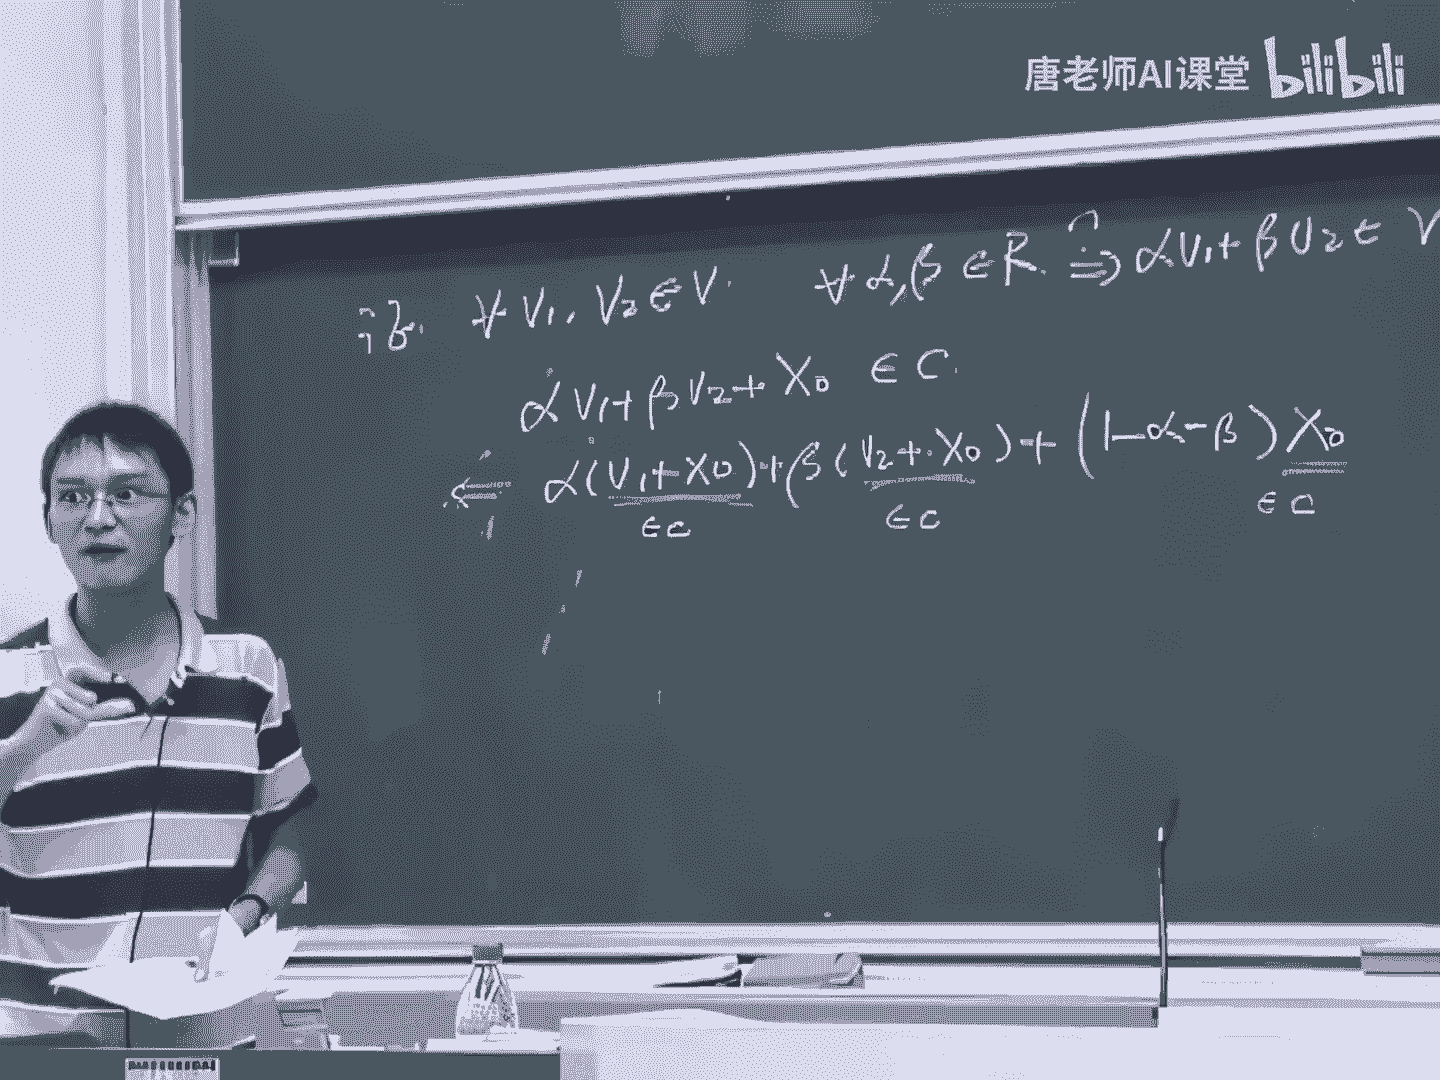 唐老师AI课堂 bilibili
证. ∀ V₁, V₂ ∈ V. ∀ α,β ∈ R. ⇒ αV₁ + βV₂ ∈ V
αV₁ + βV₂ + X₀ ∈ C.
⇐ α(V₁+X₀)+β(V₂+X₀)+(1-α-β)X₀
∈C ∈C ∈C